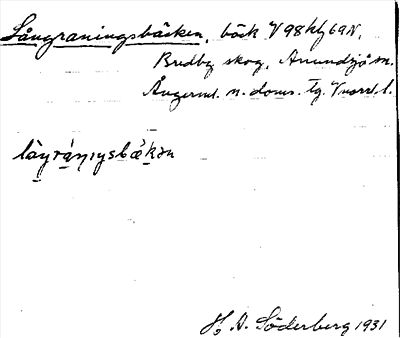 Långraningsbäcken, bäck V 98 kbf 69 N,
Bredby skog, Anundsjö sn.
Ångerml. n. doms. tg. V norrl. l.
làŋráṇıŋsbǽkən
H. A. Söderberg 1931